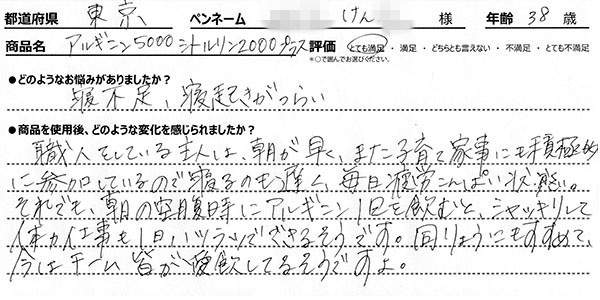 都道府県 東京 ペンネーム けん 様 年齢 38 歳
商品名 アルギニン5000シトルリン2000プラス 評価 とても満足・満足・どちらとも言えない・不満足・とても不満足
※○で囲んでお選びください。
●どのようなお悩みがありましたか?
寝不足、寝起きがつらい
●商品を使用後、どのような変化を感じられましたか?
職人をしている主人は、朝が早く、また子育て家事にも積極的
に参加しているので寝るのも遅く、毎日疲労こんぱい状態。
それでも、朝の空腹時にアルギニン1包を飲むと、シャッキリして
体力仕事も1日、ハツラツでできるそうです。同りょうにもすすめて、
今はチーム皆が愛飲してるそうですよ。